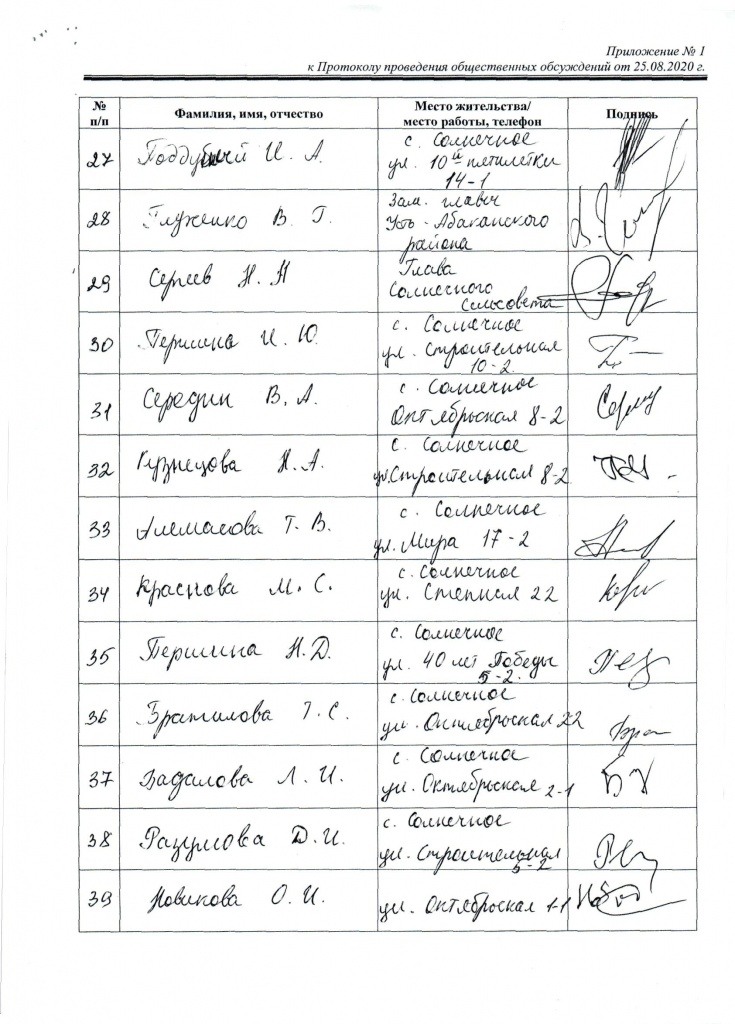 Приложение № 1
к Протоколу проведения общественных обсуждений от 25.08.2020 г.
№ п/п
Фамилия, имя, отчество
Место жительства/
место работы, телефон
Подпись
27 Поддубный И. А.
с. Солнечное
ул. 10й пятилетки
14-1
28 Глуженко В. Г.
Зам. главы
Усть-Абаканского
района
29 Сергеев Н. Н
Глава
Солнечного
Сельсовета
30 Першина И. Ю.
с. Солнечное
ул. Строительная
10-2.
31 Середин В. А.
с. Солнечное
Октябрьская 8-2
32 Кузнецова Н. А.
с. Солнечное
ул. Строительная 8-2
33 Алемасова Т. В.
с. Солнечное
ул. Мира 17-2
34 Краснова М. С.
с. Солнечное
ул. Степная 22
35 Першина Н. Д.
с. Солнечное
ул. 40 лет Победы
5-2.
36 Братилова Т. С.
с. Солнечное
ул. Октябрьская 22
37 Бадалова Л. И.
с. Солнечное
ул. Октябрьская 2-1
38 Разумова Д. И.
с. Солнечное
ул. Строительная
5-2
39 Новикова О. И.
ул. Октябрьская 1-1